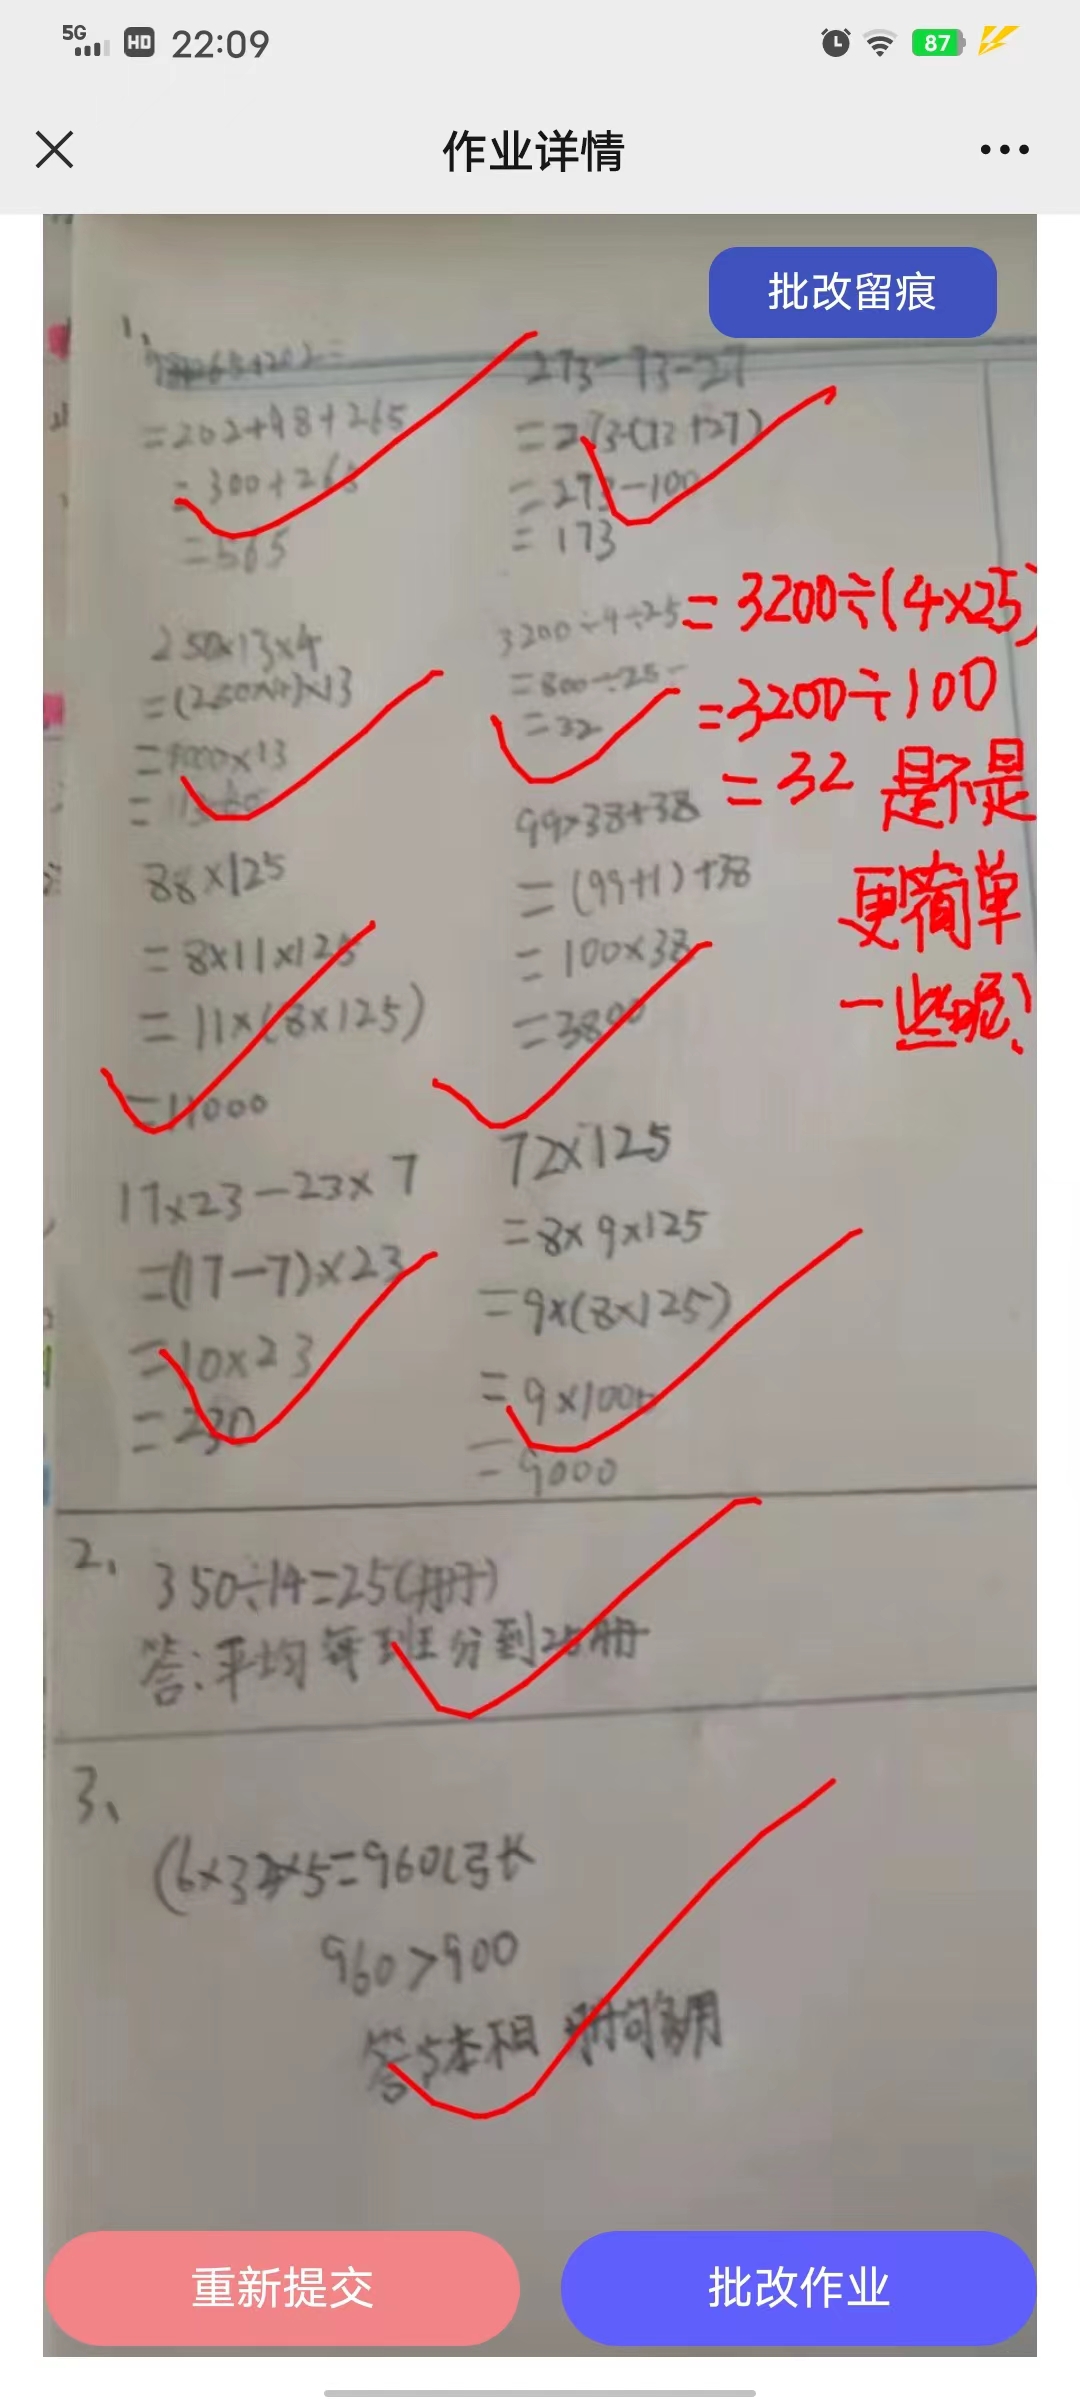 5G HD 22:09 87
作业详情
批改留痕
1、
=202+98+265
=300+265
=565
273-73-27
=273-(73+27)
=273-100
=173
250×13×4
=(250×4)×13
=1000×13
3200÷4÷25
=800÷25
=32
=3200÷(4×25)
=3200÷100
=32 是不是
更简单
一些呢?
88×125
=8×11×125
=11×(8×125)
=11000
99×38+38
=(99+1)+38
=100×38
=3800
17×23-23×7
=(17-7)×23
=10×23
=230
72×125
=8×9×125
=9×(8×125)
=9×1000
=9000
2、
350÷14=25(册)
答:平均每班分到25册
3、
(6×32×5=960(弓长
960>900
答5本相册够用
重新提交
批改作业